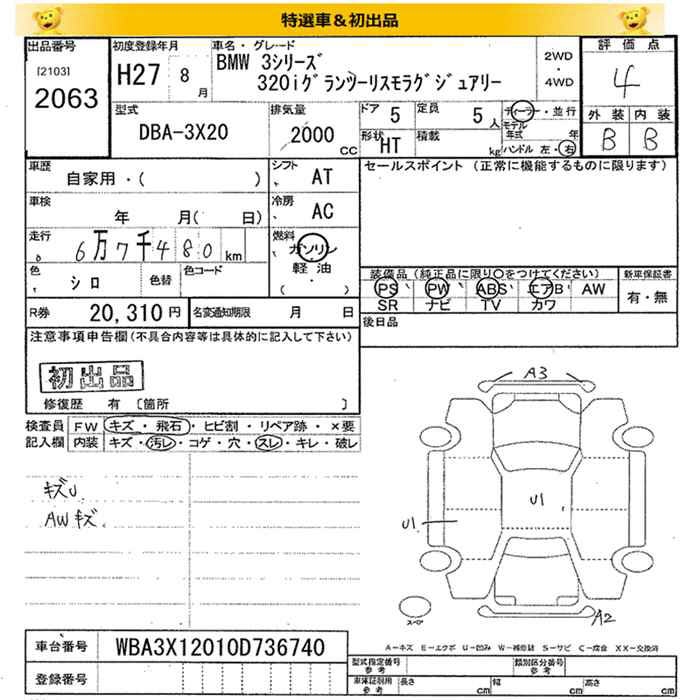 特選車＆初出品
出品番号 初度登録年月 車名・グレード 2WD・4WD 評価点
[2103] 2063 H27 8月 BMW 3シリーズ 4
320iグランツーリスモラグジュアリー
外装 内装
B B
型式 排気量 ドア 5 定員 5人 ディーラー・並行
DBA-3X20 2000 CC 形状 HT 積載 kg モデル年式 年
ハンドル 左・右
車歴 シフト セールスポイント (正常に機能するものに限ります)
自家用・( ) AT
車検 冷房
年 月( 日) AC
走行 燃料
6万7千480km ガソリン
軽油
( )
色 シロ 色替 色コード
装備品(純正品に限り○をつけてください) 新車保証書
PS PW ABS エアB AW 有・無
SR ナビ TV カワ
R券 20,310円 名変通知期限 月 日
後日品
注意事項申告欄(不具合内容等は具体的に記入して下さい)
初出品
修復歴 有 [箇所 ]
検査員 FW キズ・飛石・ヒビ割・リペア跡・×要
記入欄 内装 キズ・汚レ・コゲ・穴・スレ・キレ・破レ
A3
キズU
AWキズ
U1
U1
スペア
A2
A-キズ E-エクボ U-凹み W-補修跡 S-サビ C-腐食 XX-交換済
車台番号 WBA3X12010D736740
型式指定番号 参考 類別区分番号 参考
登録番号
車庫証明用 参考 長さ cm 幅 cm 高さ cm